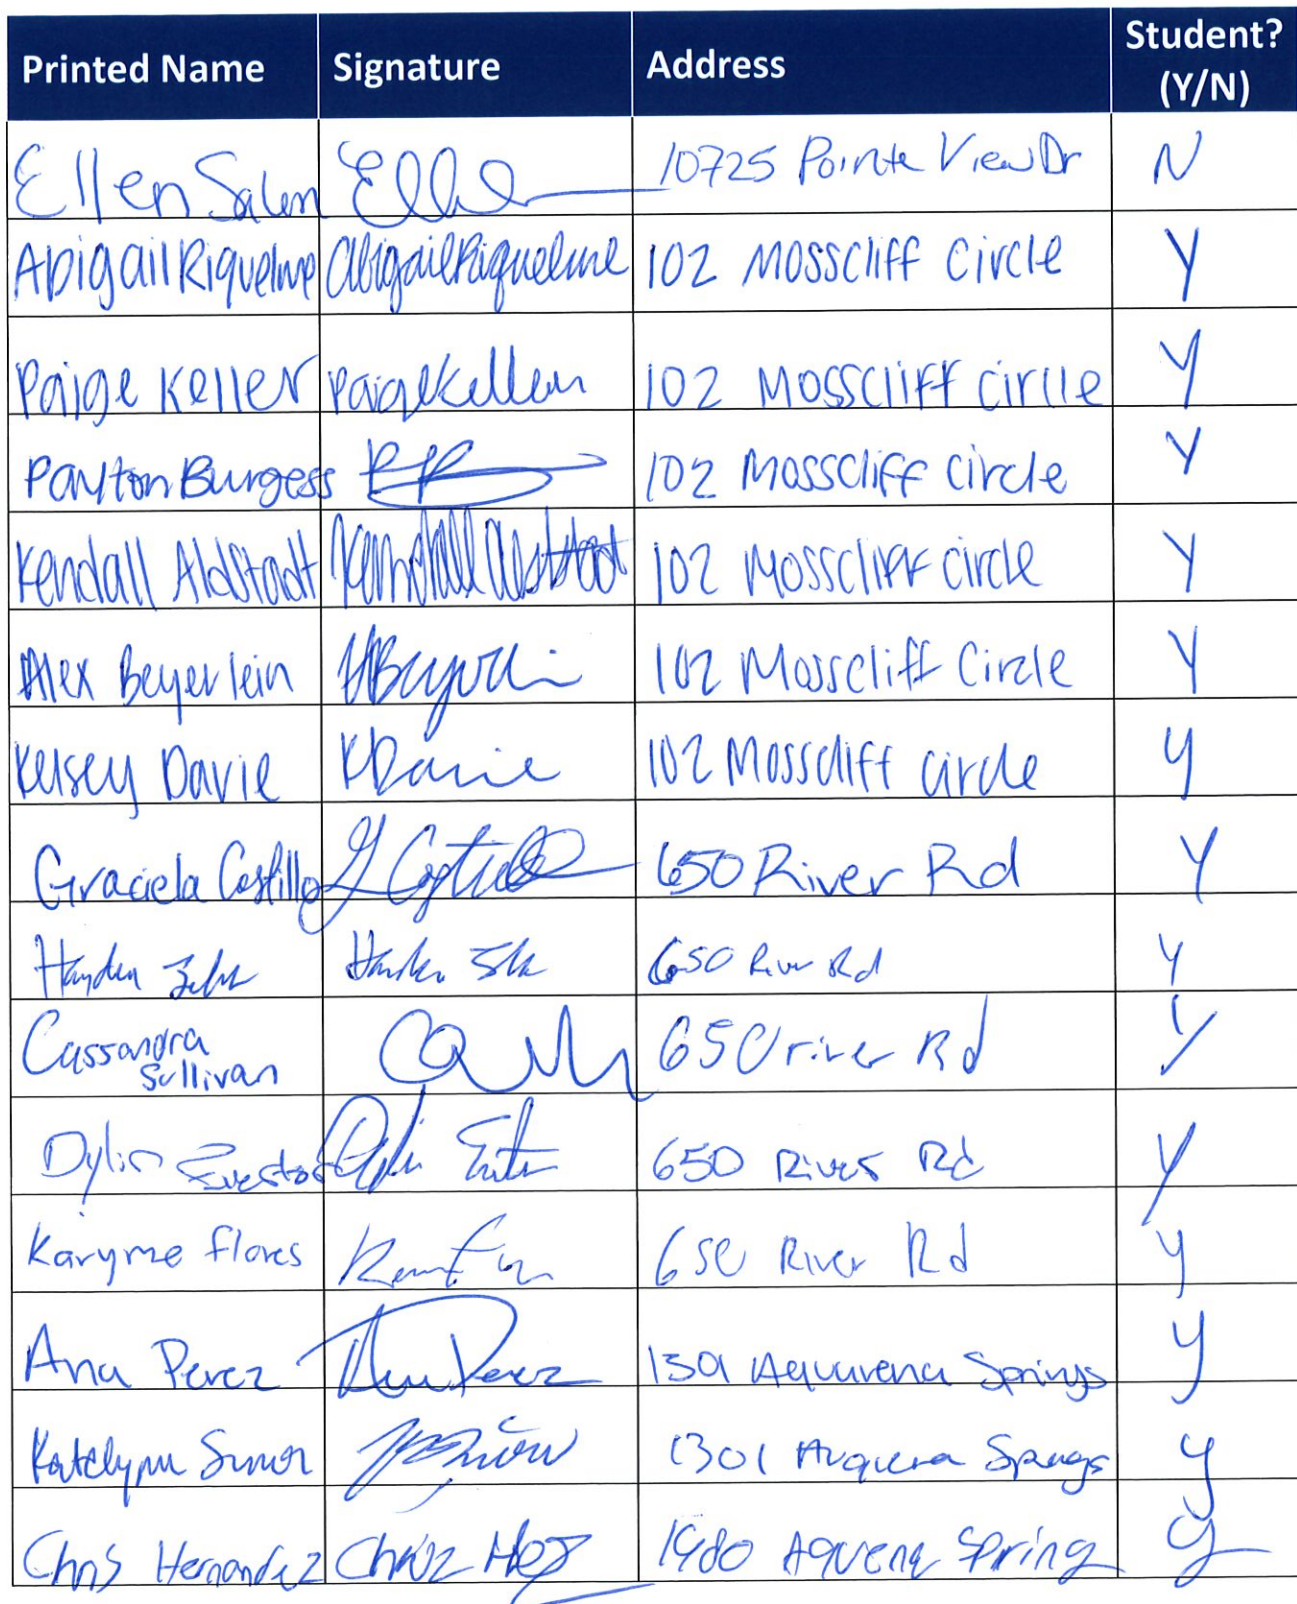 Printed Name Signature Address Student? (Y/N)
Ellen Salem 10725 Pointe View Dr N
Abigail Riquelme Abigail Riquelme 102 Mosscliff Circle Y
Paige Keller Paige Keller 102 Mosscliff circle Y
Payton Burgess 102 Mosscliff Circle Y
Kendall Aldstadt Kendall 102 Mosscliff circle Y
Alex Beyerlein 102 Mosscliff Circle Y
Kelsey Davie KDavie 102 Mosscliff circle Y
Graciela Castillo G Castillo 650 River Rd Y
Hayden 650 River Rd Y
Cassandra Sullivan 650 river Rd Y
Dylin 650 River Rd Y
Karyme flores 650 River Rd Y
Ana Perez Ana Perez 1301 Springs Y
Katelynn 1301 Springs Y
Chris Hernandez Spring Y